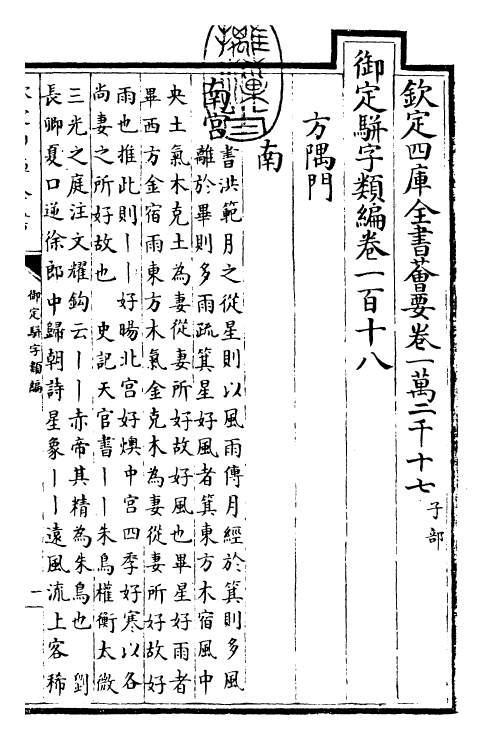 欽定四庫全書薈要卷一萬二千十七 子部
御定駢字類編卷一百十八
方隅門
南
南宮 書洪範月之從星則以風雨傳月經於箕則多風
離於畢則多雨疏箕星好風者箕東方木宿風中
央土氣木克土為妻從妻所好故好風也畢星好雨者
畢西方金宿雨東方木氣金克木為妻從妻所好故好
雨也推此則丨丨好暘北宮好燠中宮四季好寒以各
尚妻之所好故也 史記天官書丨丨朱鳥權衡太微
三光之庭注文耀鉤云丨丨赤帝其精為朱鳥也 劉
長卿夏口送徐郎中歸朝詩星象丨丨遠風流上客稀
御定駢字類編
一